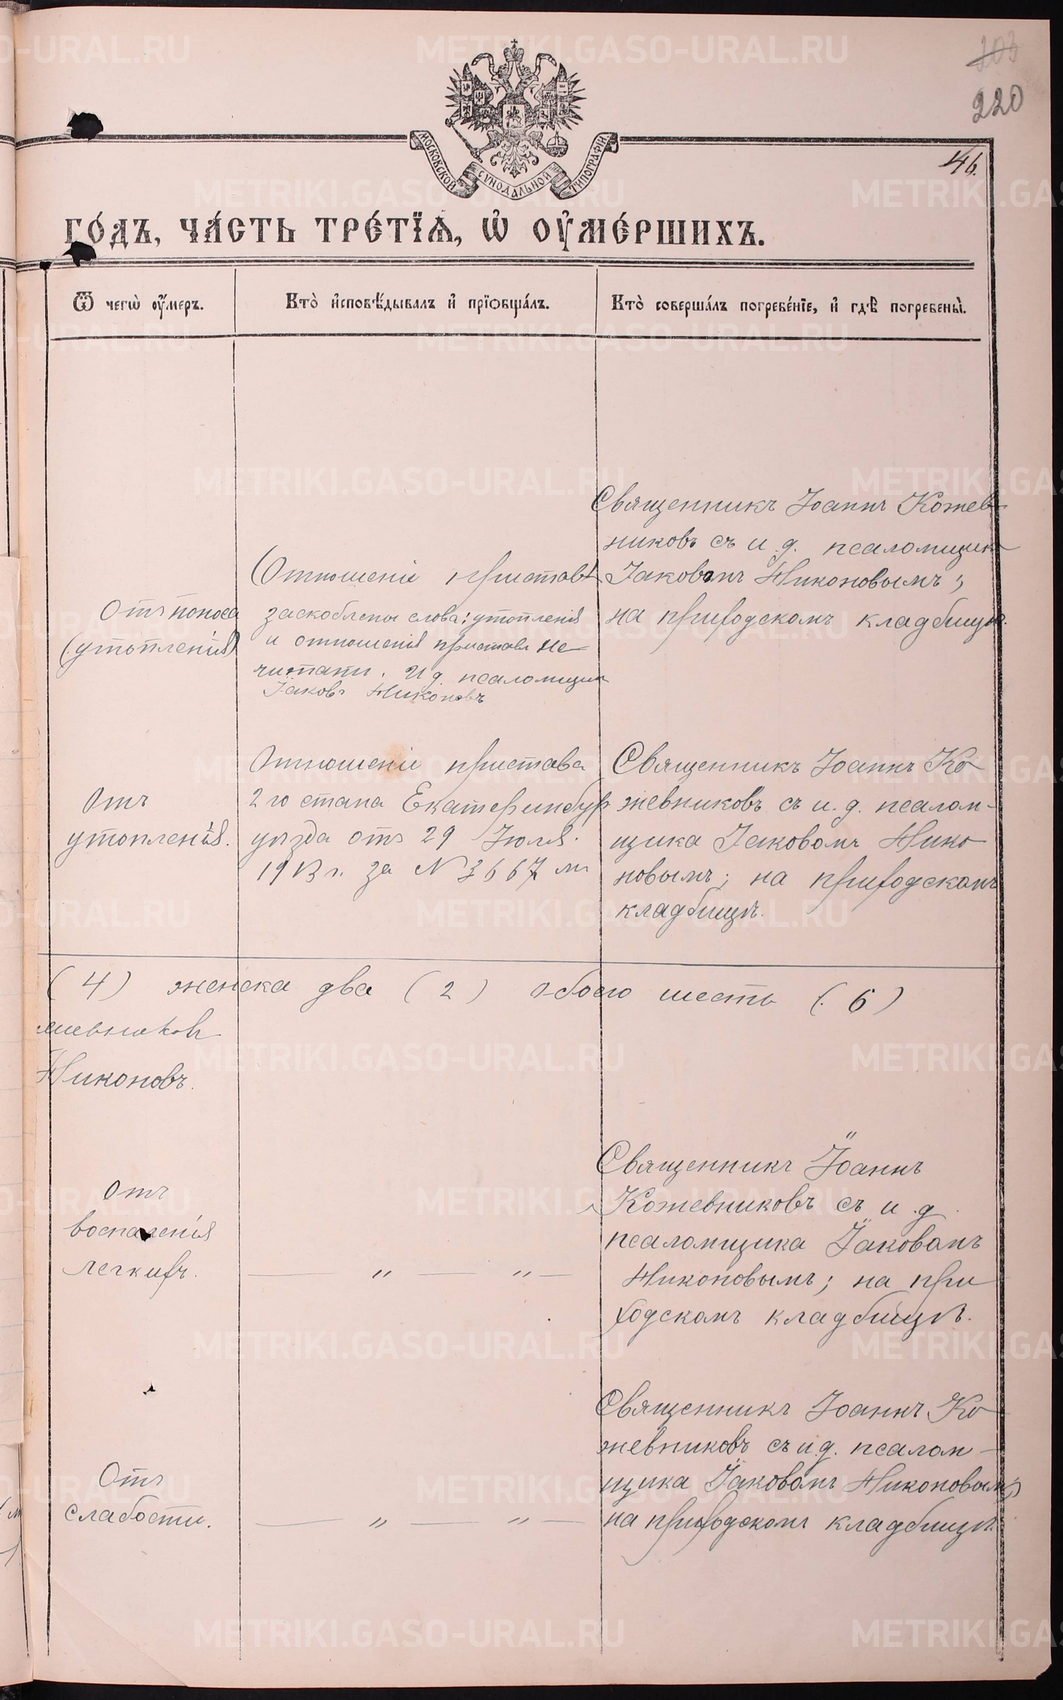 103
220
МОСКОВСКОЙ СѴНОДАЛЬНОЙ ТИПОГРАФІИ
46.
го́дъ, ча́сть тре́тїѧ, ѡ҆ оу҆ме́ршихъ.
Ѿ чегѡ̀ оу҆́меръ.
Кто̀ и҆сповѣ́дывалъ и҆ прїѡбща́лъ.
Кто̀ соверша́лъ погребе́нїе, и҆ гдѣ̀ погребены̀.
Отъ поноса
(утопленія)
(Отношеніе пристава
заскоблены слова: утопленія
и отношенія пристава не
читать. И д. псаломщика
Іаковъ Никоновъ
Священникъ Іоаннъ Кожев-
никовъ съ и. д. псаломщика
Іаковомъ Никоновымъ;
на приходскомъ кладбищѣ.
Отъ
утопленія.
Отношеніе пристава
2 го стана Екатеринбур
уѣзда отъ 29 Іюля
1913 г. за № 3667 мъ
Священникъ Іоаннъ Ко-
жевниковъ съ и. д. псалом-
щика Іаковомъ Нико
новымъ; на приходскомъ
кладбищѣ.
(4) женска два (2) обоего шесть (6)
Никоновъ.
Отъ
воспаленія
легкихъ.
— „ — „ —
Священникъ Іоаннъ
Кожевниковъ съ и. д.
псаломщика Іаковомъ
Никоновымъ; на при
ходскомъ кладбищѣ.
Отъ
слабости.
— „ — „ —
Священникъ Іоаннъ Ко
жевниковъ съ и. д. псалом-
щика Іаковомъ Никоновымъ;
на приходскомъ кладбищѣ.
METRIKI.GASO-URAL.RU